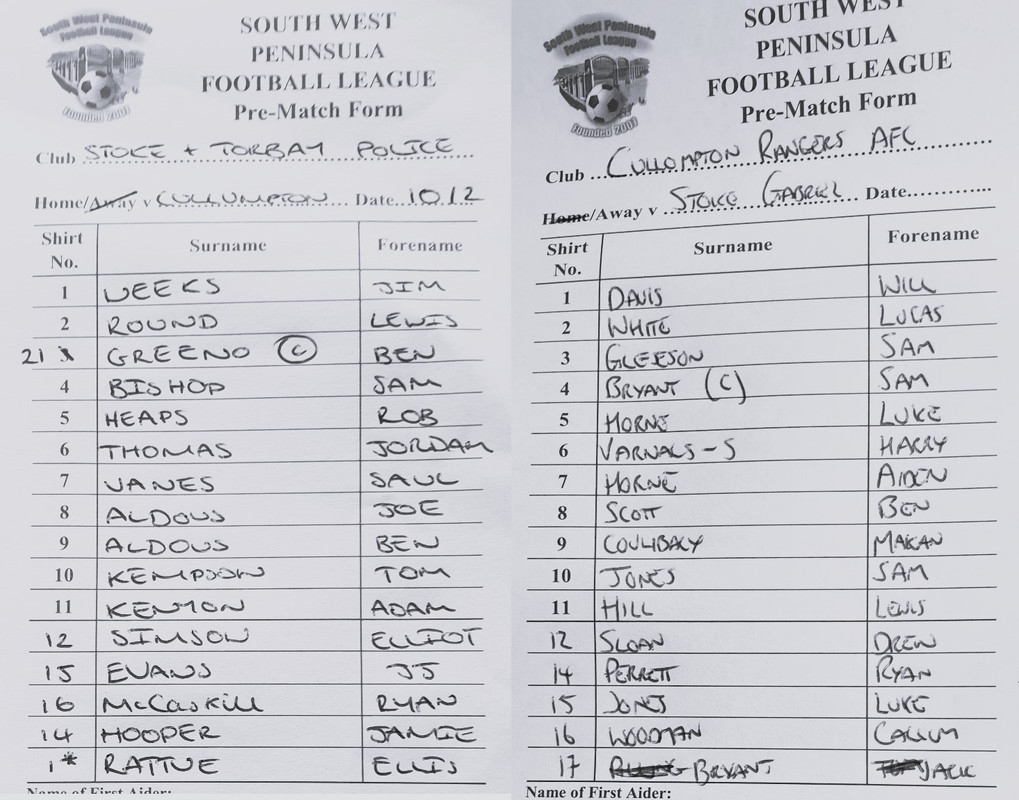 South West Peninsula
Football League
Founded 2007
SOUTH WEST
PENINSULA
FOOTBALL LEAGUE
Pre-Match Form
Club STOKE + TORBAY POLICE
Home/Away v CULLUMPTON Date 10.12
Shirt No. Surname Forename
1 WEEKS JIM
2 ROUND LEWIS
21 GREENO (C) BEN
4 BISHOP SAM
5 HEAPS ROB
6 THOMAS JORDAN
7 VANES SAUL
8 ALDOUS JOE
9 ALDOUS BEN
10 KEMPSON TOM
11 KENYON ADAM
12 SIMSON ELLIOT
15 EVANS JJ
16 McCaskill RYAN
14 HOOPER JAMIE
1* RATTUE ELLIS
Name of First Aider:
South West Peninsula
Football League
Founded 2007
SOUTH WEST
PENINSULA
FOOTBALL LEAGUE
Pre-Match Form
Club CULLOMPTON RANGERS AFC
Home/Away v STOKE GABRIEL Date
Shirt No. Surname Forename
1 DAVIS WILL
2 WHITE LUCAS
3 GLEESON SAM
4 BRYANT (C) SAM
5 HORNE LUKE
6 VARNALS-S HARRY
7 HORNE AIDEN
8 SCOTT BEN
9 COULIBALY MAKAN
10 JONES SAM
11 HILL LEWIS
12 SLOAN DREW
14 PERRETT RYAN
15 JONES LUKE
16 WOODMAN CALLUM
17 BRYANT JACK
Name of First Aider: